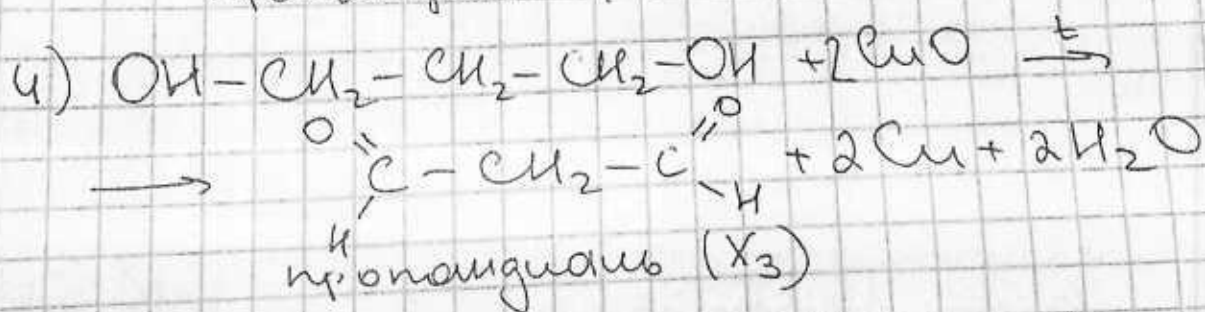 4) OH-CH₂-CH₂-CH₂-OH +2CuO →t
→ O=C(-H)-CH₂-C(=O)-H + 2Cu + 2H₂O
пропандиаль (X₃)